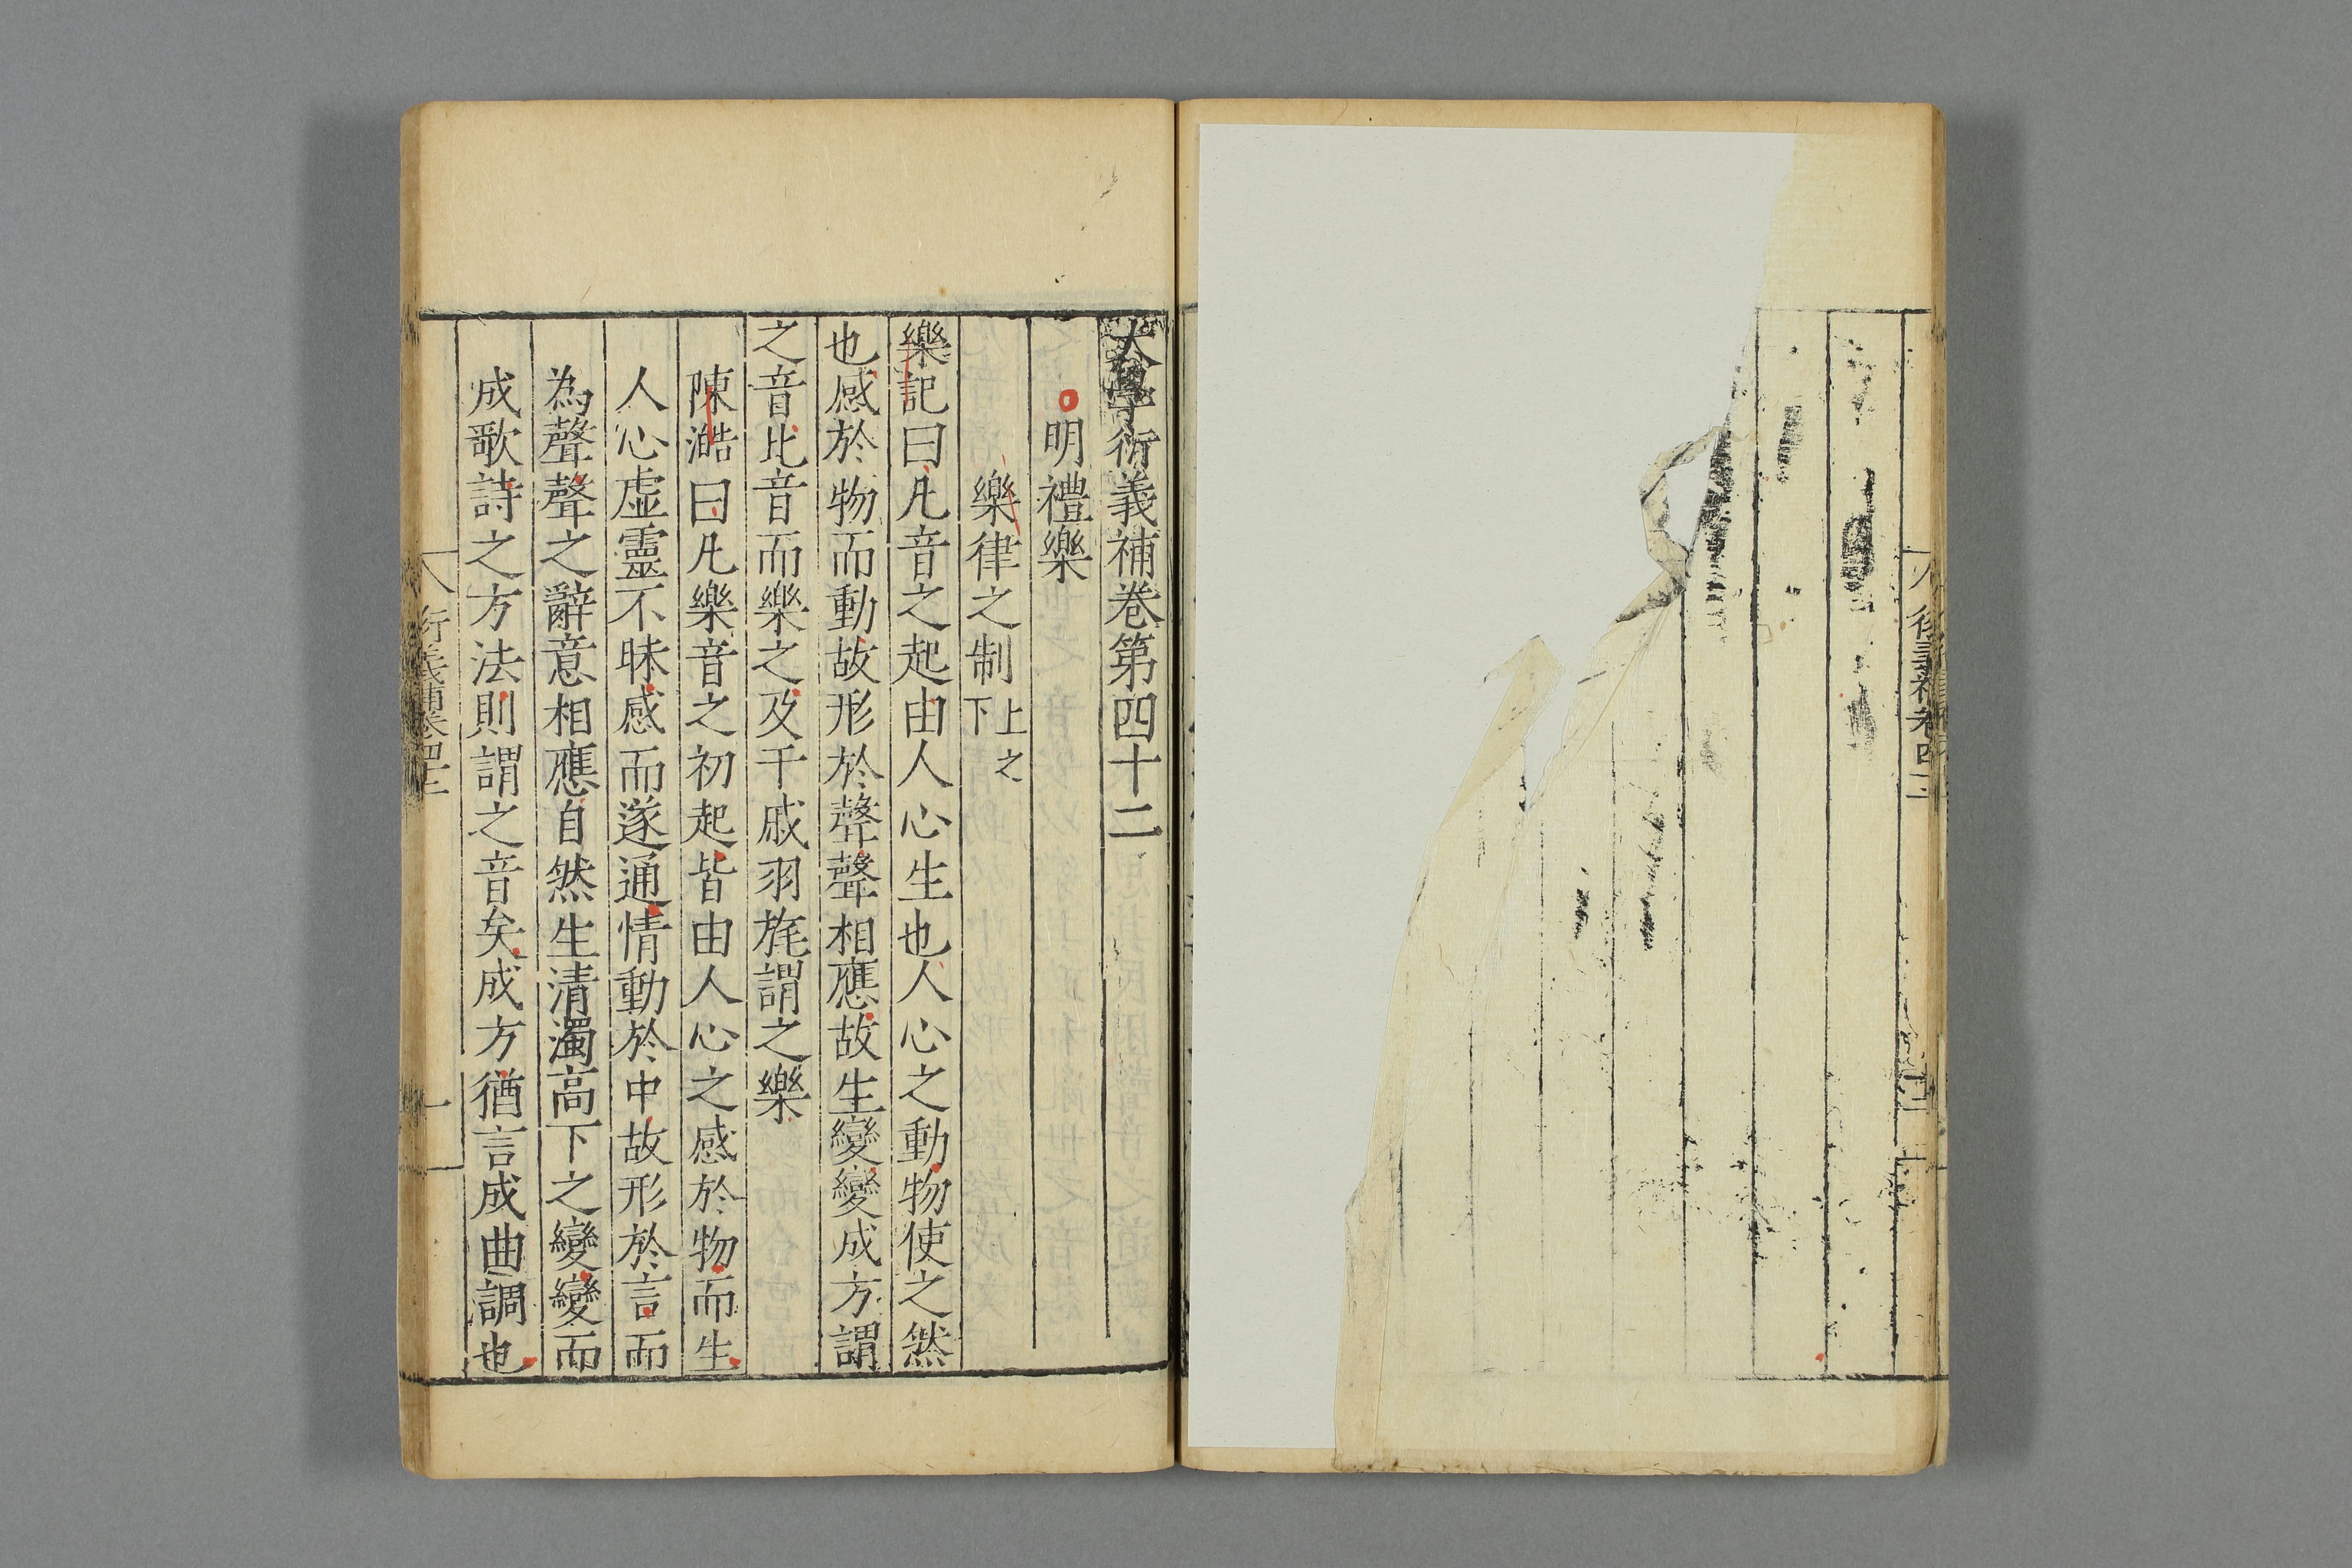 大學衍義補卷第四十二
明禮樂
樂律之制 上之下
樂記曰凡音之起由人心生也人心之動物使之然
也感於物而動故形於聲聲相應故生變變成方謂
之音比音而樂之及干戚羽旄謂之樂
陳澔曰凡樂音之初起皆由人心之感於物而生
人心虛靈不昧感而遂通情動於中故形於言而
為聲聲之辭意相應自然生清濁高下之變變而
成歌詩之方法則謂之音矣成方猶言成曲調也
衍義補卷四十二
一